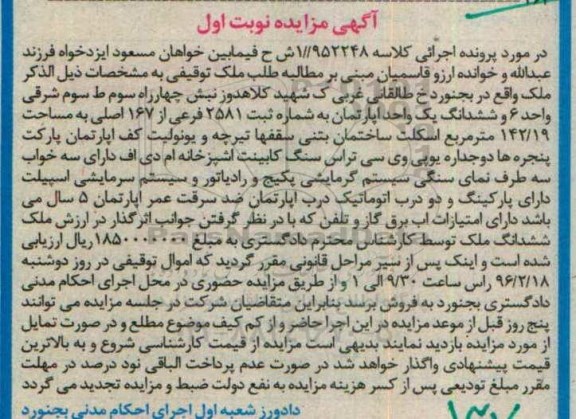 آگهی مزایده نوبت اول
در مورد پرونده اجرائی کلاسه ۹۵۲۲۴۸//۱ش ح فیمابین خواهان مسعود ایزدخواه فرزند
عبدالله و خوانده ارزو قاسمیان مبنی بر مطالبه طلب ملک توقیفی به مشخصات ذیل الذکر
ملک واقع در بجنورد خ طالقانی غربی ک شهید کلاهدوز نبش چهارراه سوم ط سوم شرقی
واحد ۶ و ششدانگ یک واحد اپارتمان به شماره ثبت ۲۵۸۱ فرعی از ۱۶۷ اصلی به مساحت
۱۴۲/۱۹ مترمربع اسکلت ساختمان بتنی سقفها تیرچه و یونولیت کف اپارتمان پارکت
پنجره ها دوجداره یوپی وی سی تراس سنگ کابینت اشپزخانه ام دی اف دارای سه خواب
سه طرف نمای سنگی سیستم گرمایشی پکیج و رادیاتور و سیستم سرمایشی اسپیلت
دارای پارکینگ و دو درب اتوماتیک درب اپارتمان ضد سرقت عمر اپارتمان ۵ سال می
باشد دارای امتیازات اب برق گاز و تلفن که با در نظر گرفتن جوانب اثرگذار در ارزش ملک
ششدانگ ملک توسط کارشناس محترم دادگستری به مبلغ ریال ارزیابی
شده است و اینک پس از سیر مراحل قانونی مقرر گردید که اموال توقیفی در روز دوشنبه
۹۶/۲/۱۸ راس ساعت ۹/۳۰ الی ۱۰ از طریق مزایده حضوری در محل اجرای احکام مدنی
دادگستری بجنورد به فروش برسد بنابراین متقاضیان شرکت در جلسه مزایده می توانند
پنج روز قبل از موعد مزایده در این اجرا حاضر و از کم کیف موضوع مطلع و در صورت تمایل
از مورد مزایده بازدید نمایند بدیهی است مزایده از قیمت کارشناسی شروع و به بالاترین
قیمت پیشنهادی واگذار خواهد شد در صورت عدم پرداخت الباقی نود درصد در مهلت
مقرر مبلغ تودیعی پس از کسر هزینه مزایده به نفع دولت ضبط و مزایده تجدید می گردد
دادورز شعبه اول اجرای احکام مدنی بجنورد